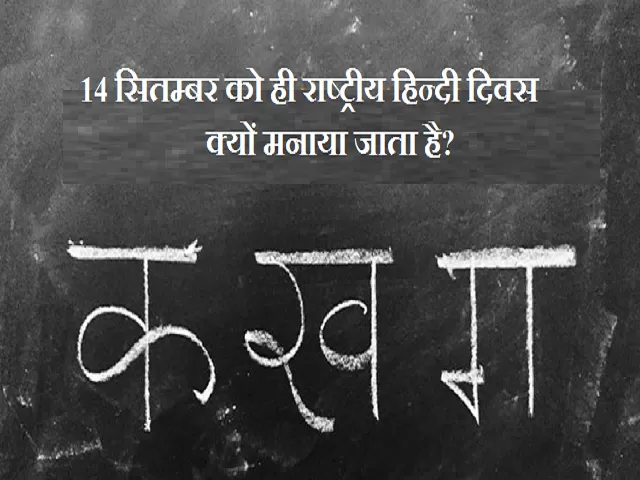 14 सितम्बर को ही राष्ट्रीय हिन्दी दिवस
क्यों मनाया जाता है?
क ख ग